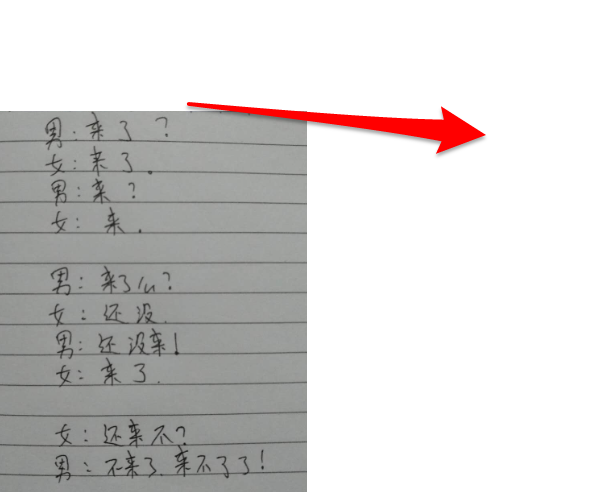 男：来了？
女：来了.
男：来？
女：来.
男：来了么？
女：还没.
男：还没来！
女：来了.
女：还来不？
男：不来了,来不了了！